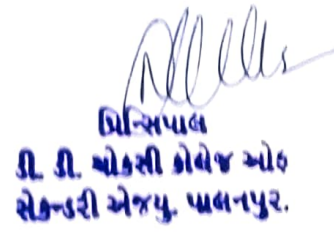 પ્રિન્સિપાલ
ડી. ડી. ચોકસી કોલેજ ઓફ
સેકન્ડરી એજયુ. પાલનપુર.